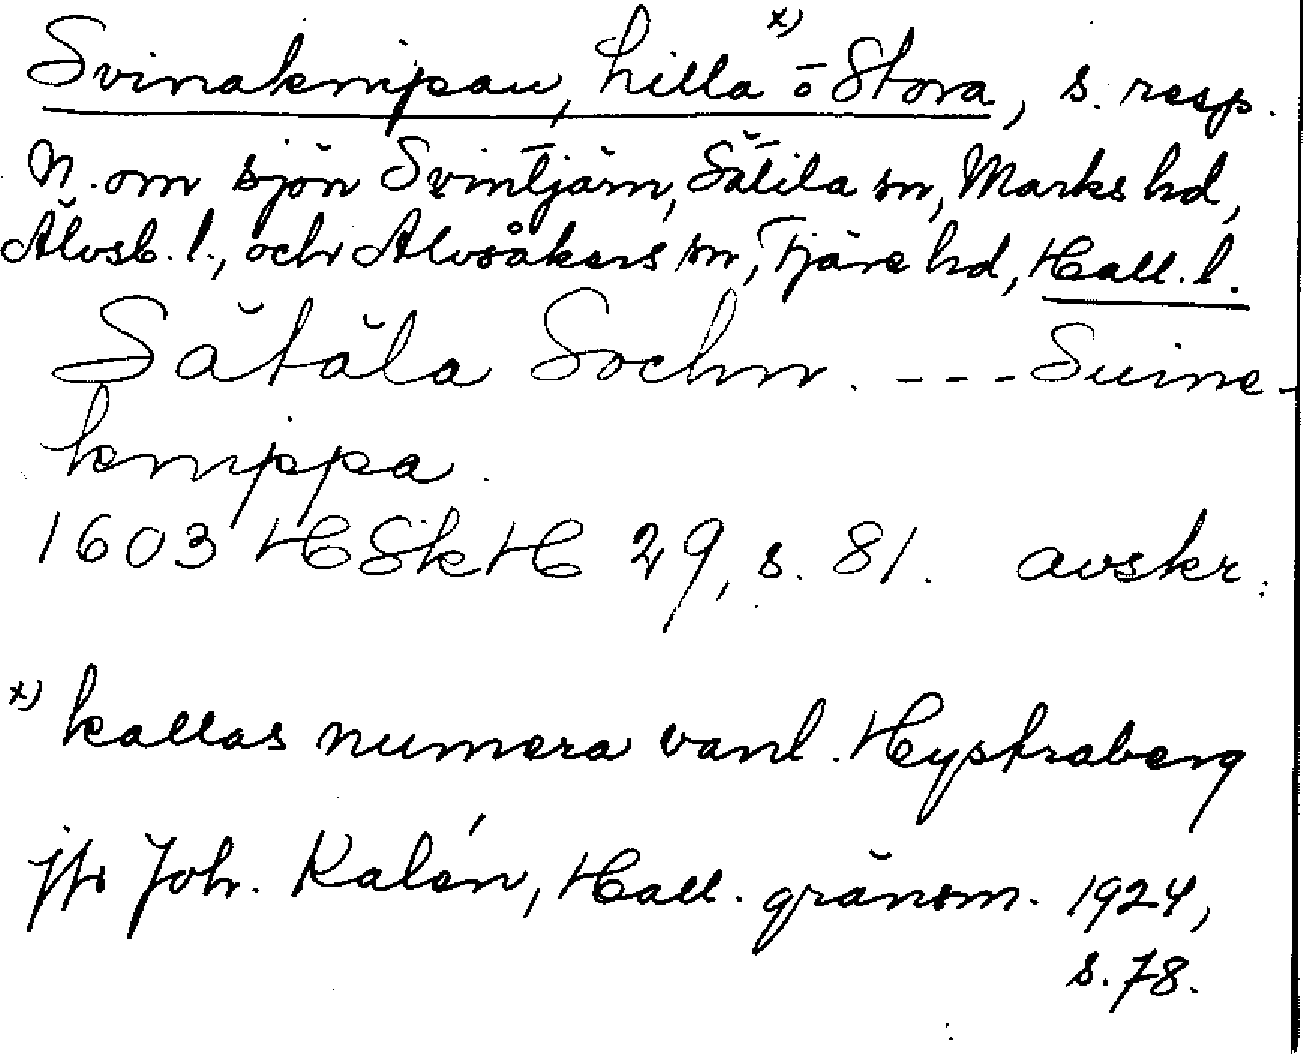 Svinaknipau, Lilla x) o Stora, s. resp.
N. om sjön Svintjärn, Sätila sn, Marks hd,
Älvsb. l., och Älvsåkers sn, Fjäre hd, Hall. l.
Sätäla Sochn. --- Suine-
knippa.
1603 HSkH 29, s. 81. avskr.
x) kallas numera vanl. Hystraberg
jfr Joh. Kalén, Hall. gränsm. 1924,
s. 78.